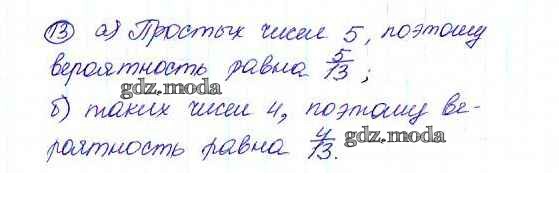 13 а) Простых чисел 5, поэтому
вероятность равна 5/13;
gdz.moda
б) таких чисел 4, поэтому ве-
gdz.moda
роятность равна 4/13.